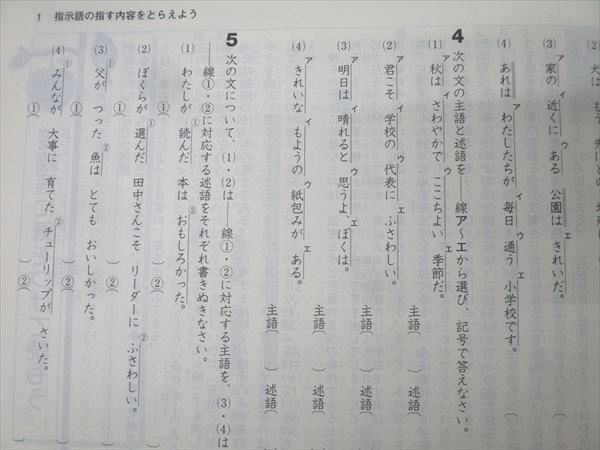 1 指示語の指す内容をとらえよう
(3) 家の 近くに ある 公園は きれいだ。
ア イ ウ エ
(4) あれは わたしたちが 毎日 通う 小学校です。
ア イ ウ エ
4 次の文の主語と述語を——線ア〜エから選び、記号で答えなさい。
(1) 秋は さわやかで ここちよい 季節だ。
ア イ ウ エ
主語〔 〕 述語〔
(2) 君こそ 学校の 代表に ふさわしい。
ア イ ウ エ
主語〔 〕 述語〔
(3) 明日は 晴れると 思うよ、ぼくは。
ア イ ウ エ
主語〔 〕 述語〔
(4) きれいな もようの 紙包みが ある。
ア イ ウ エ
主語〔 〕 述語〔
5 次の文について、(1)・(2)は——線①・②に対応する主語を、(3)・(4)は
——線①・②に対応する述語をそれぞれ書きぬきなさい。
(1) わたしが 読んだ 本は おもしろかった。
① ②
①〔 〕 ②〔 〕
(2) ぼくらが 選んだ 田中さんこそ リーダーに ふさわしい。
① ②
①〔 〕 ②〔 〕
(3) 父が つった 魚は とても おいしかった。
① ②
①〔 〕 ②〔 〕
(4) みんなが 大事に 育てた チューリップが さいた。
① ②
①〔 〕 ②〔 〕